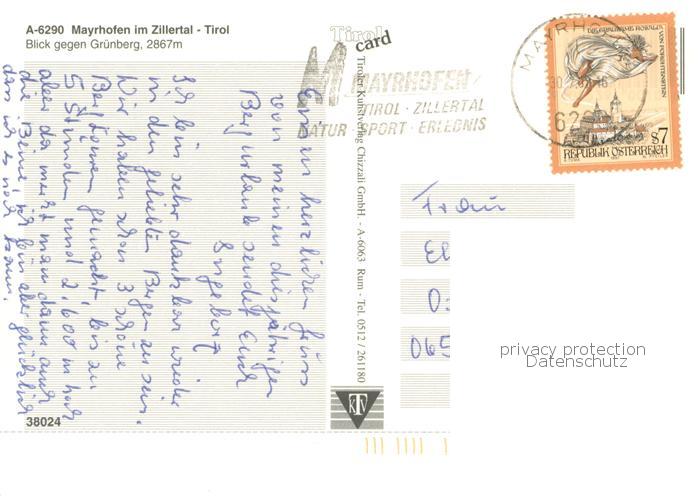 A-6290 Mayrhofen im Zillertal - Tirol
Blick gegen Grünberg, 2867m
Tirol
card
M MAYRHOFEN
TIROL · ZILLERTAL
NATUR · SPORT · ERLEBNIS
MAYRHO
62
DIE GRAUSAME ROSALIA
VON FORCHTENSTEIN
S7
REPUBLIK ÖSTERREICH
Einen herzlichen Gruss
von meinem diesjährigen
Bergurlaub sendet Euch
Ingeborg
Ich bin sehr dankbar wieder
in den geliebten Bergen zu sein.
Wir haben schon 3 schöne
Bergtouren gemacht, bis zu
5 Stunden und 2.600 m hoch
aber da merkt man dann auch
die Beine, ich bin aber glücklich
das ich es noch kann.
Tiroler Kunstverlag Chizzali GmbH. - A-6063 Rum - Tel. 0512 / 261180
KTV
38024
Frau
065
privacy protection
Datenschutz